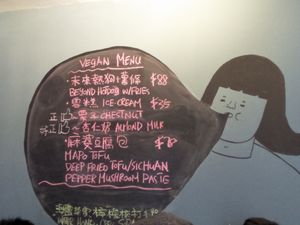 VEGAN MENU
·未來熱狗+薯條 $88
BEYOND HOTDOG W/FRIES
·雪糕 ICE-CREAM $35
栗子 CHESTNUT
杏仁奶 ALMOND MILK
·麻婆豆腐包 $78
MAPO TOFU
DEEP FRIED TOFU/SICHUAN
PEPPER MUSHROOM PASTE